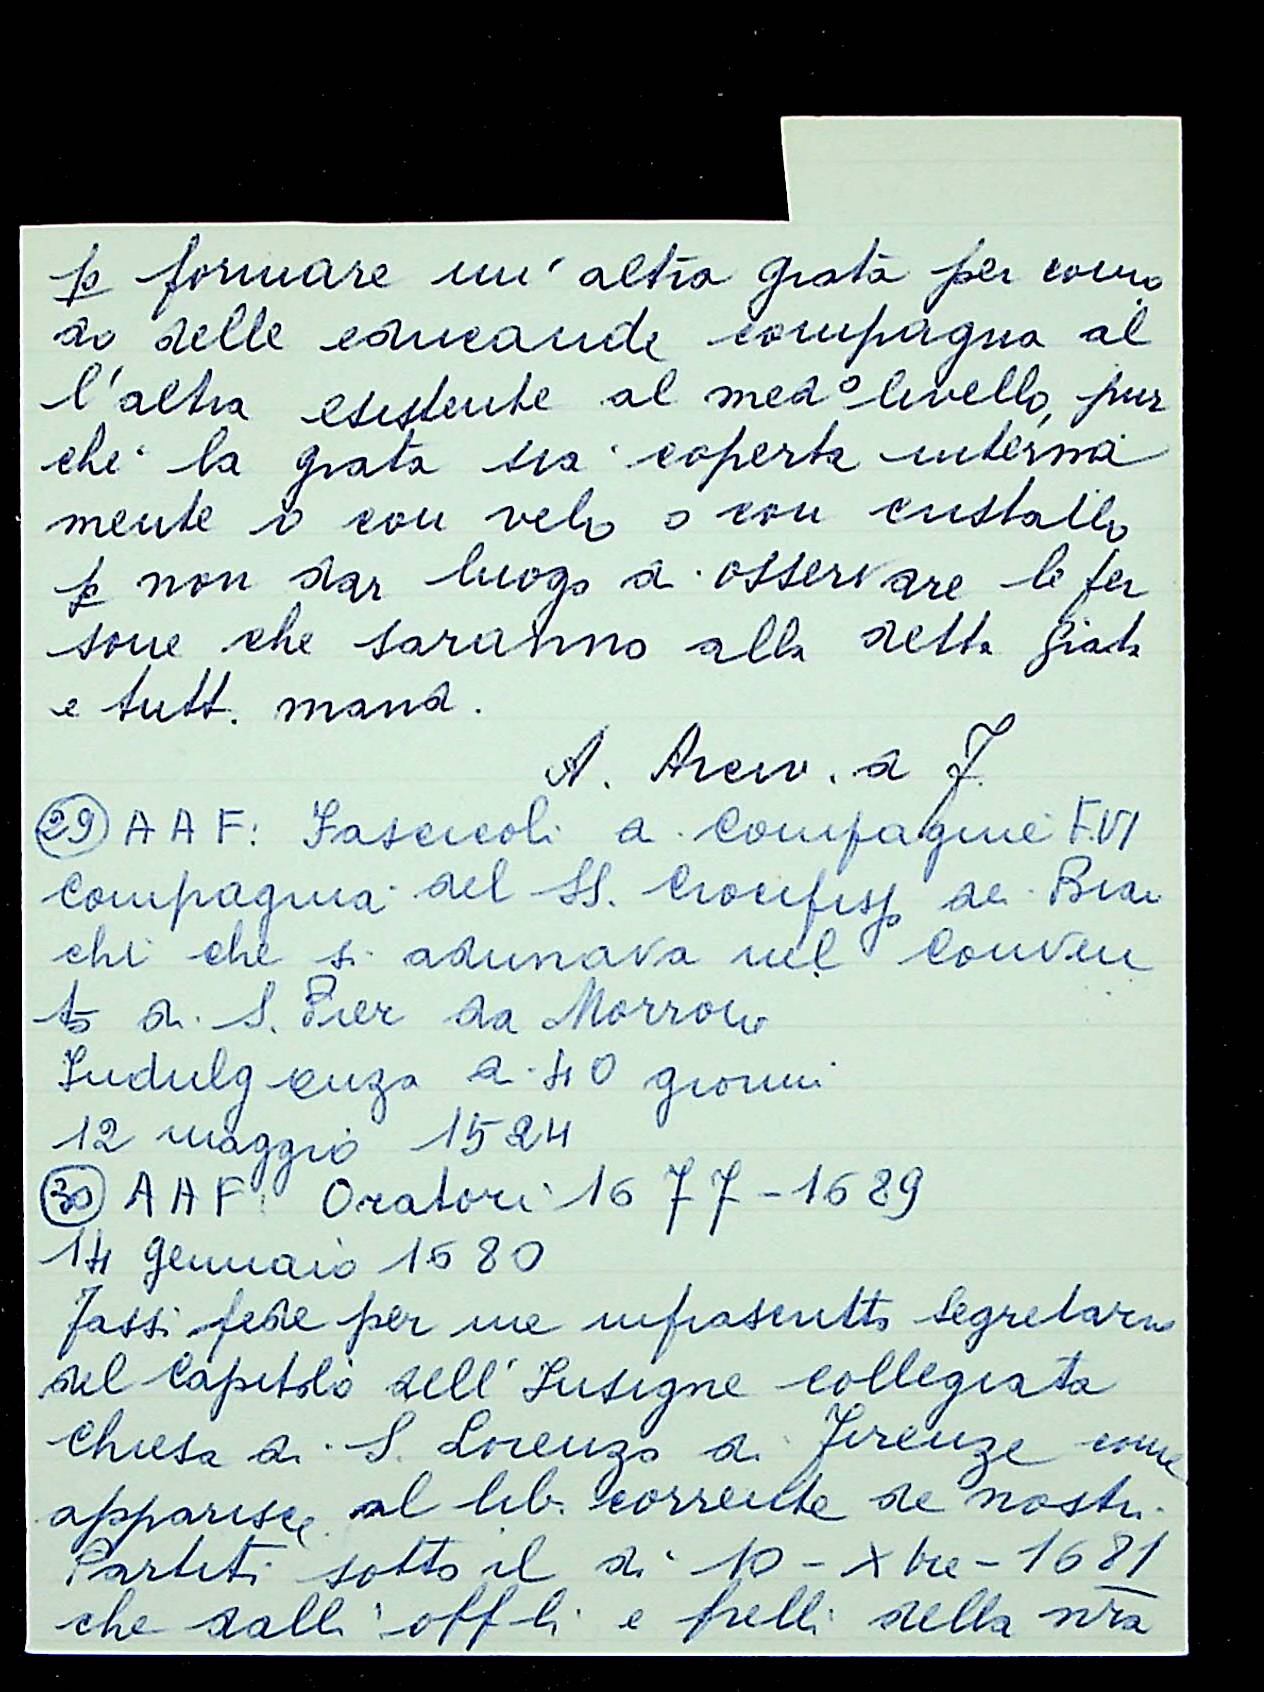 p formare un'altra grata per como
do delle educande compagna al
l'altra esistente al med° livello, pur
che la grata sia coperta interna
mente o con velo o con cristallo
p non dar luogo di osservare le per
sone che saranno alla detta grata
e tutt. mand.
A. Arciv. di F.
29 AAF: Fascicoli di Compagnie F.VI
Compagnia del SS. Crocifisso dei Bian
chi che si adunava nel Conven
to di S. Pier da Morrone
Indulgenza di 40 giorni
12 maggio 1524
30 AAF: Oratori 1677-1689
14 gennaio 1680
Fassi fede per me infrascritto Segretario
del Capitolo dell'Insigne collegiata
Chiesa di S. Lorenzo di Firenze come
apparisce al lib. corrente de nostri
Partiti sotto il di 10 - Xbre - 1681
che dalli offli e frelli della nra